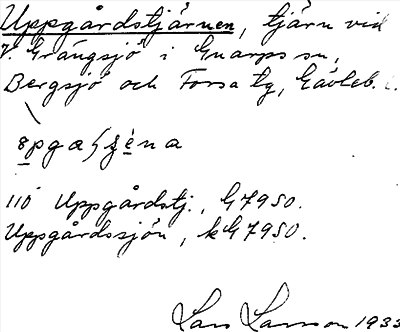 Uppgårdstjärnen, tjärn vid
V. Grängsjö i Gnarps sn,
Bergsjö och Forsa tg, Gävleb. l.
110 Uppgårdstj., G7950.
Uppgårdssjön, kG7950.
Lars Larsson 1933